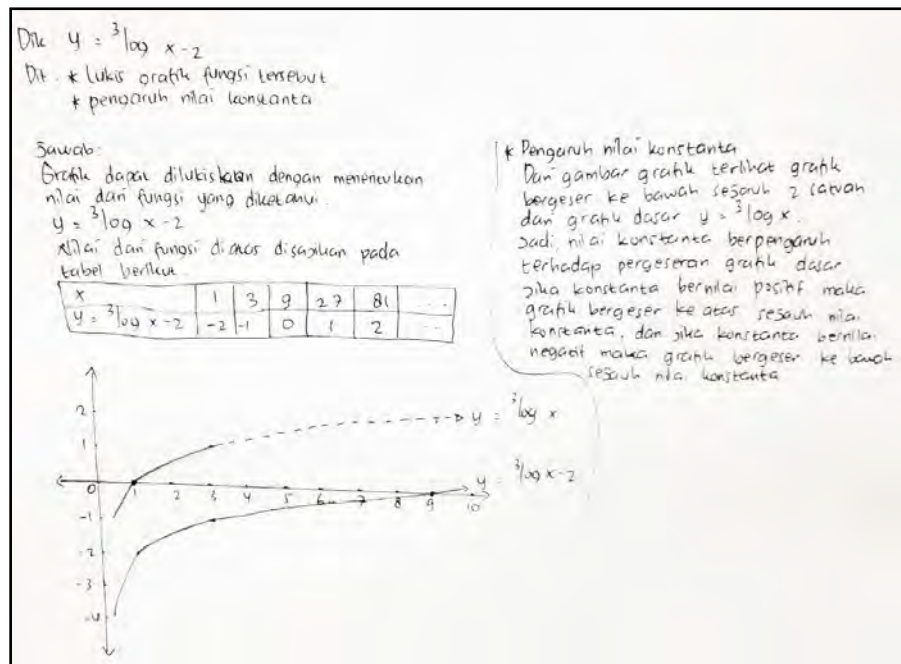 Dik y = ³log x-2
Dit. * lukis grafik fungsi tersebut
* pengaruh nilai konstanta
Jawab:
Grafik dapat dilukiskan dengan menentukan
nilai dari fungsi yang diketahui.
y = ³log x-2
Nilai dari fungsi diatas disajikan pada
tabel berikut.
x 1 3 9 27 81 ...
y = ³log x-2 -2 -1 0 1 2 ...
* Pengaruh nilai konstanta
Dari gambar grafik terlihat grafik
bergeser ke bawah sejauh 2 satuan
dari grafik dasar y = ³log x.
Jadi, nilai konstanta berpengaruh
terhadap pergeseran grafik dasar
jika konstanta bernilai positif maka
grafik bergeser ke atas sejauh nilai
konstanta, dan jika konstanta bernilai
negatif maka grafik bergeser ke bawah
sejauh nilai konstanta
2
y = ³log x
1
0 1 2 3 4 5 6 7 8 9 10
y = ³log x-2
-1
-2
-3
-4